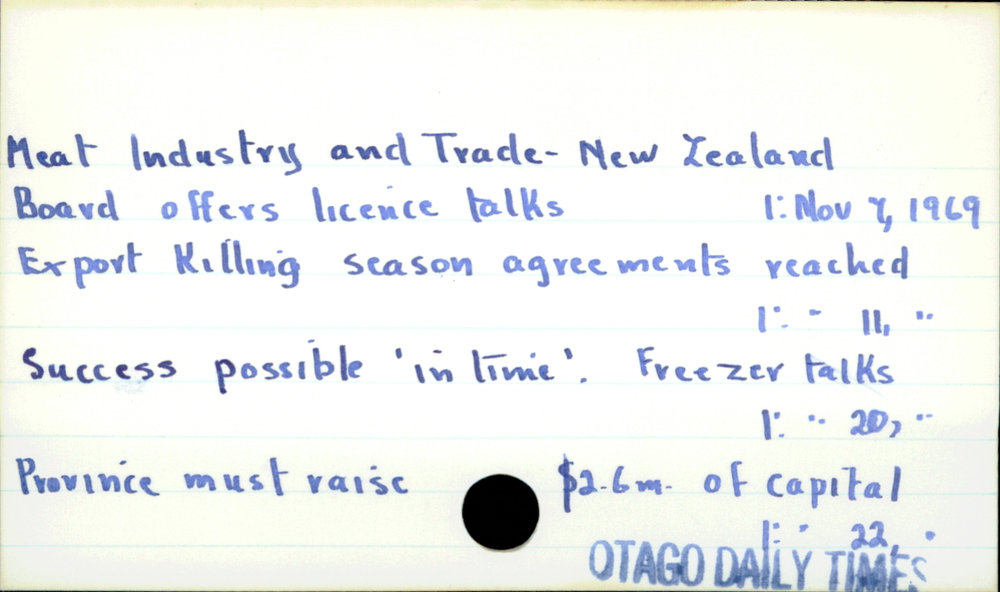 Meat Industry and Trade- New Zealand
Board offers licence talks 1: Nov 7, 1969
Export Killing season agreements reached
1: " 11, "
Success possible 'in time'. Freezer talks
1: " 20, "
Province must raise $2.6m. of capital
1: " 22, "
OTAGO DAILY TIMES